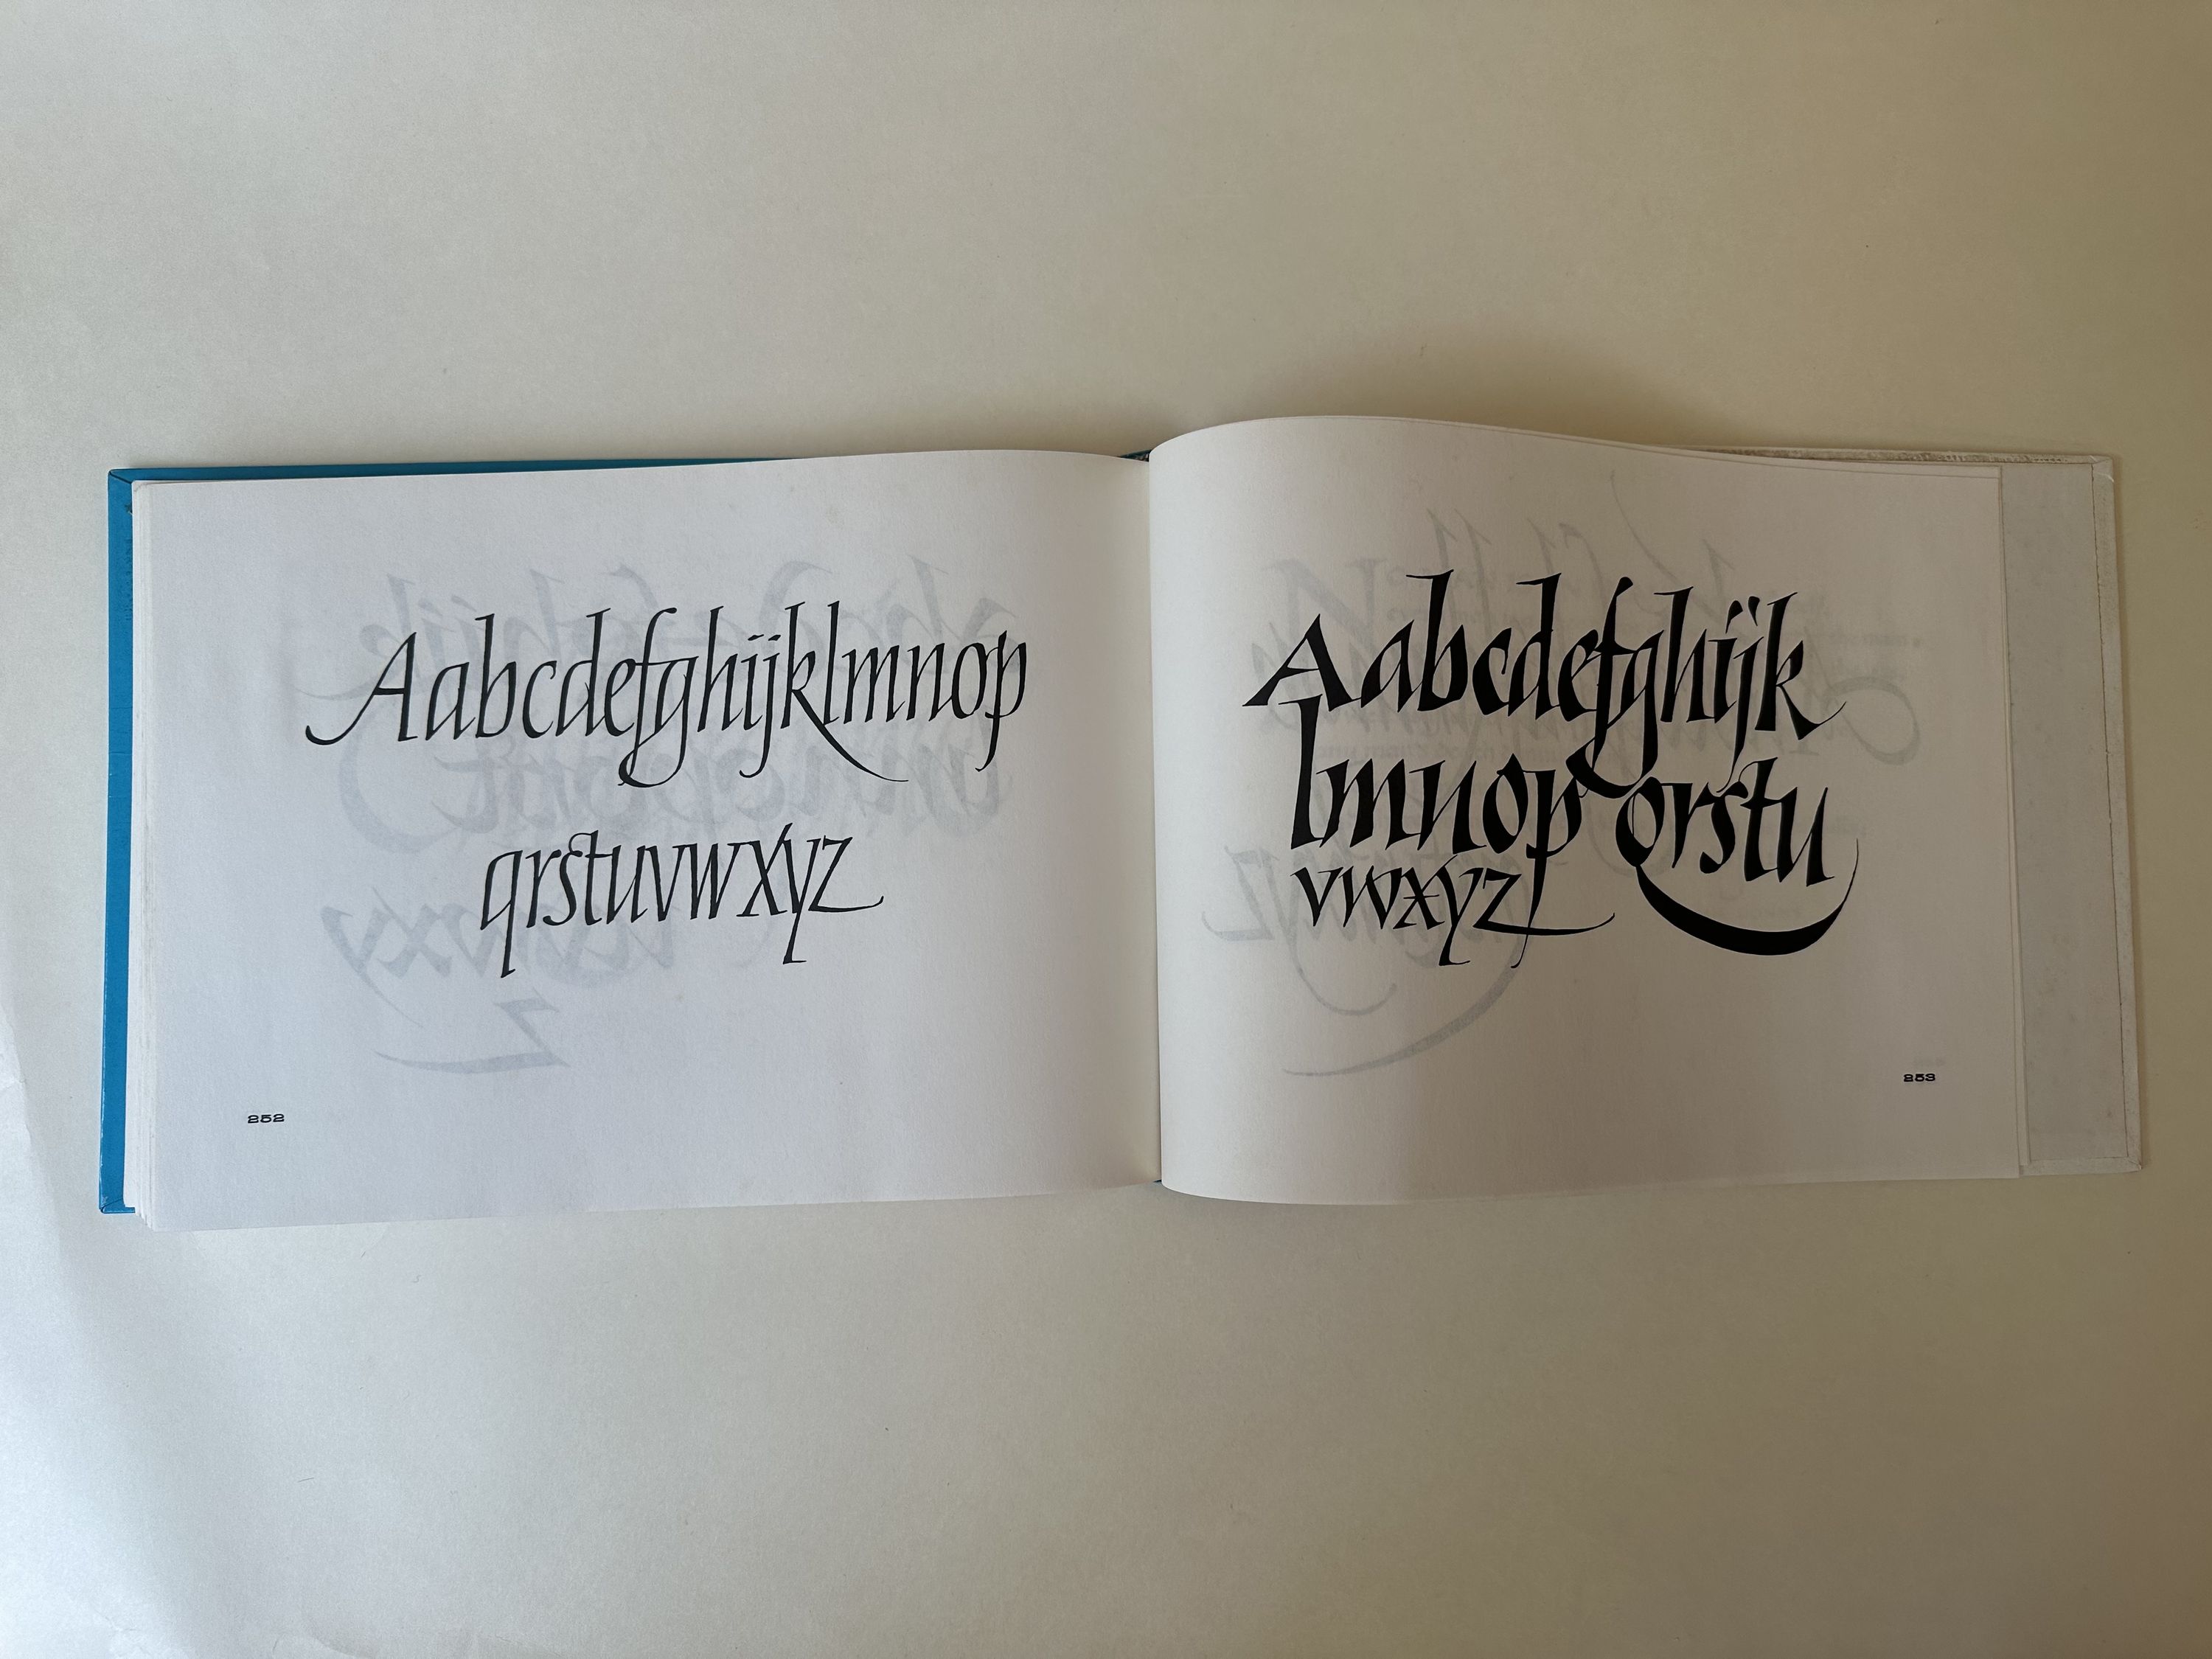 Aabcdefghijklmnop
qrstuvwxyz
252
Aabcdefghijk
lmnop qrstu
vwxyz
253